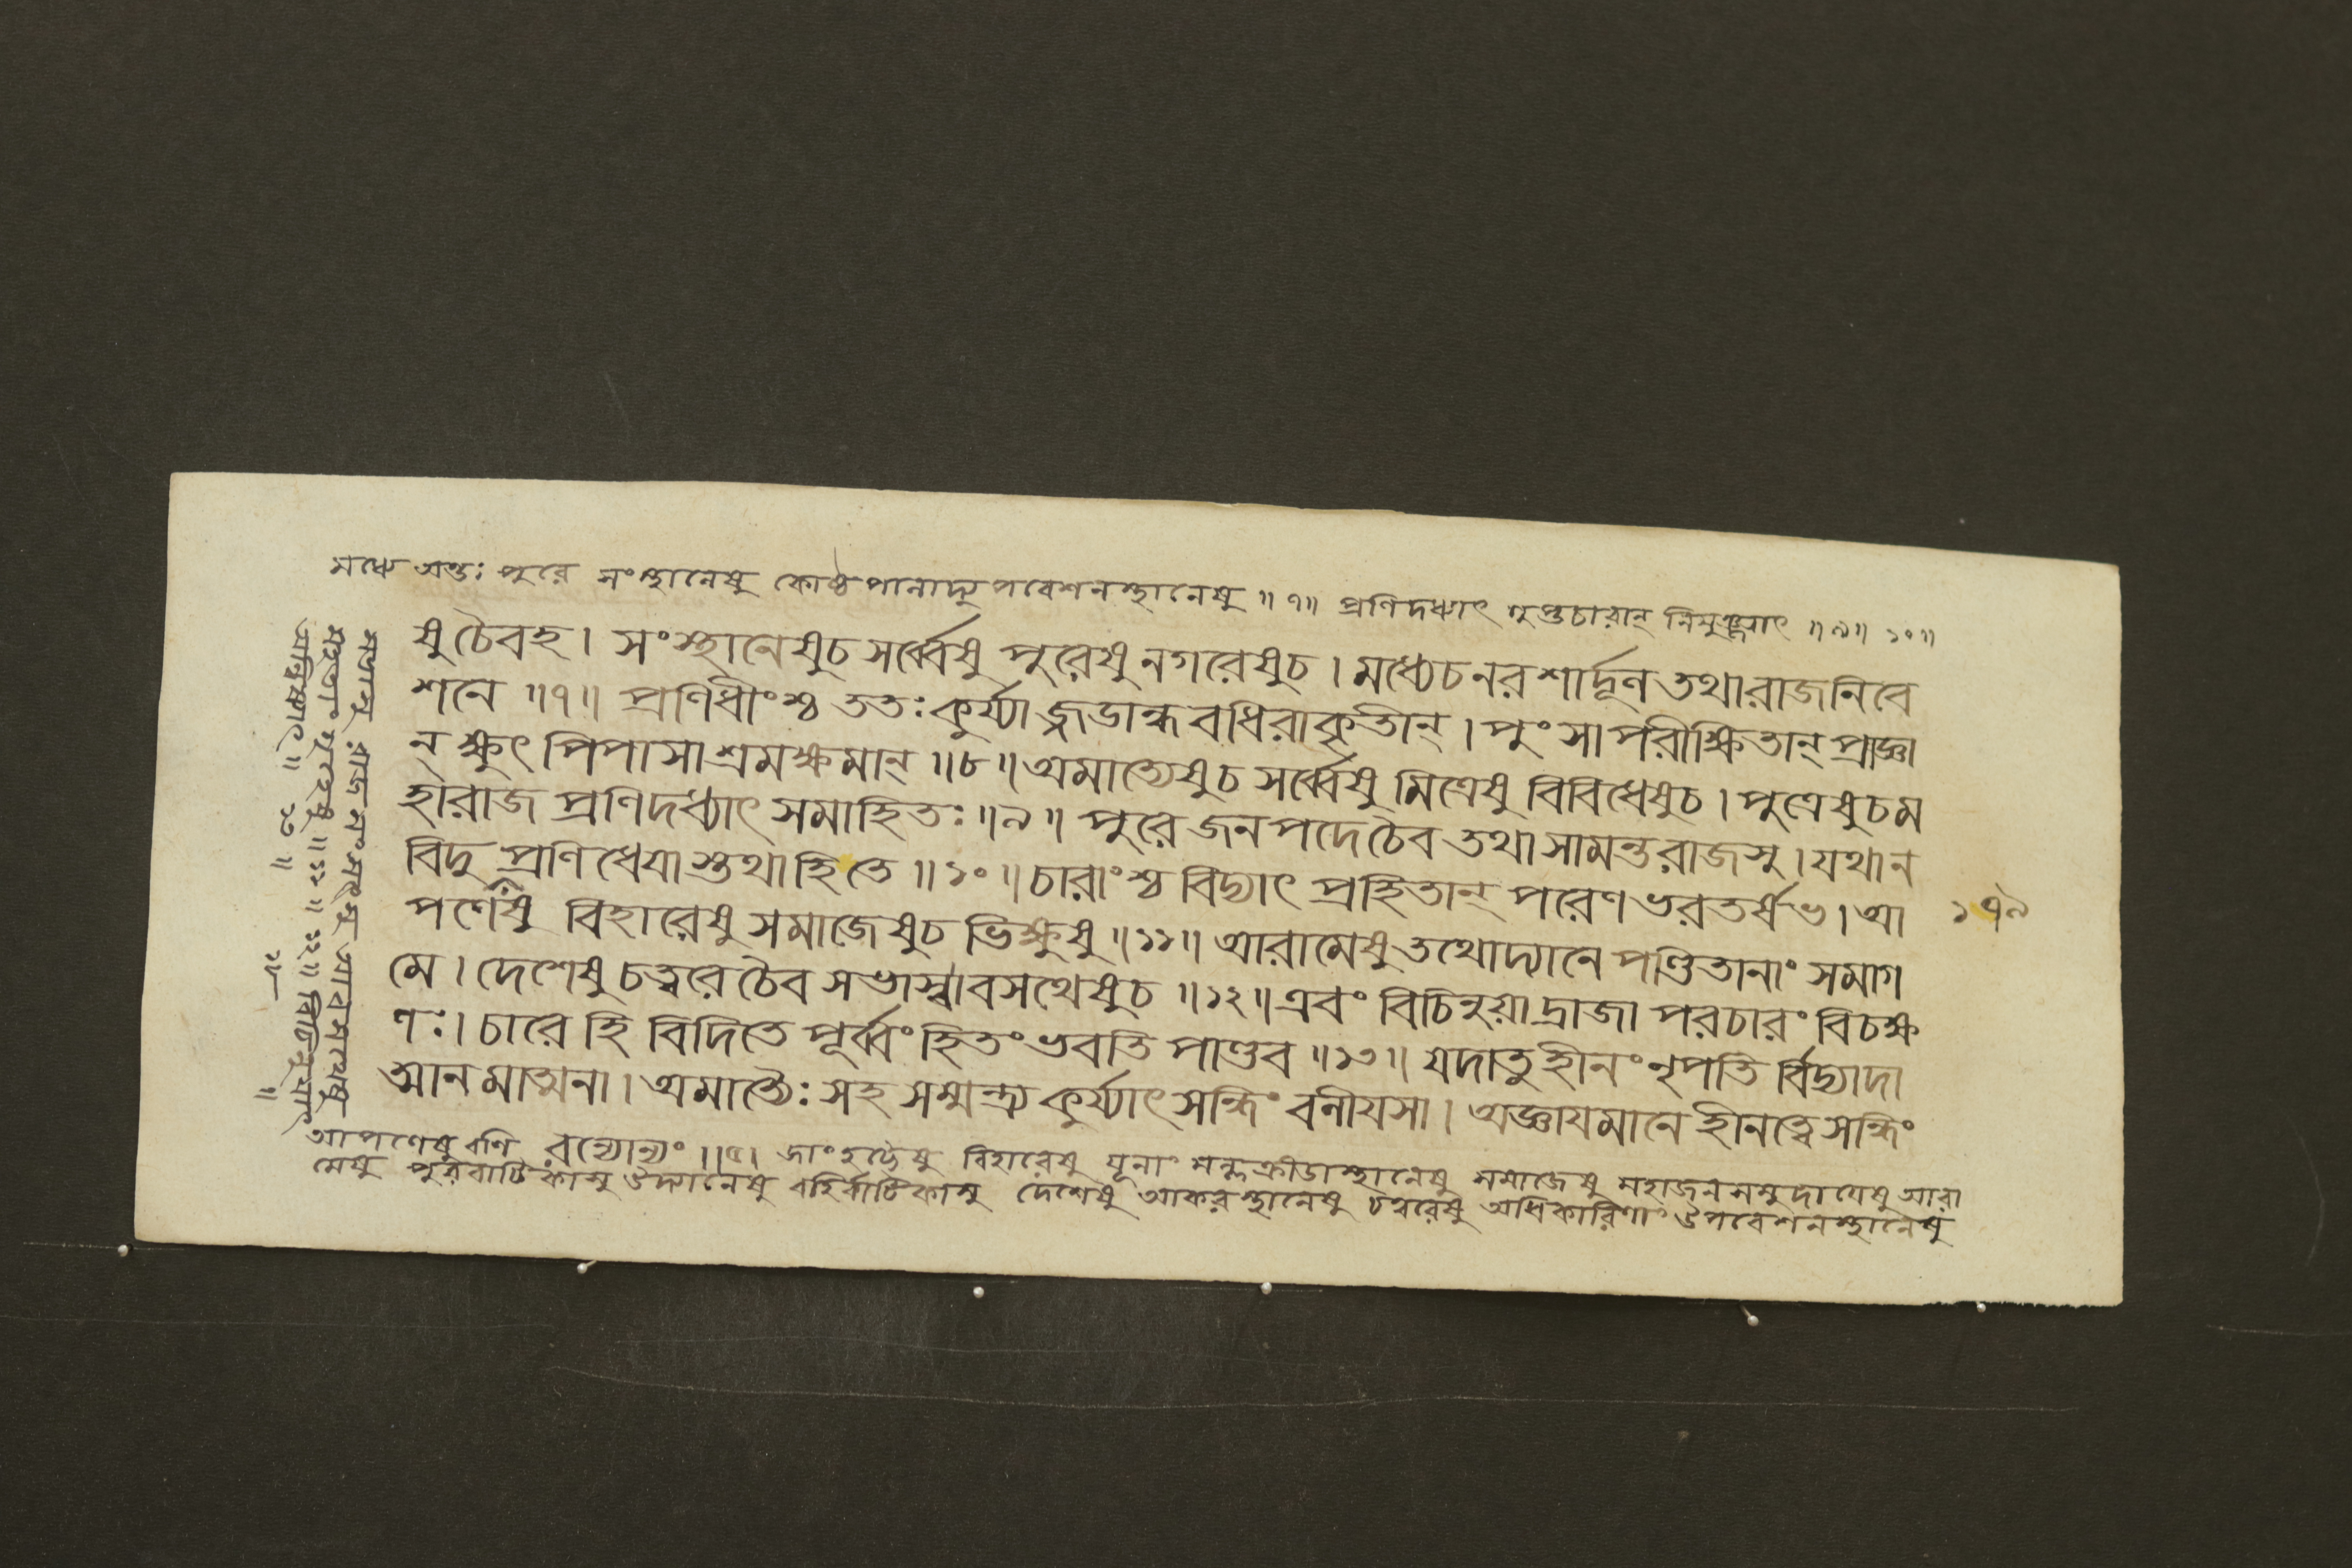 মধ্যে অন্তঃপুরে সংস্থানেষু কোষ্ঠপানাদ্যুপবেশনস্থানেষু ॥ ৭॥ প্রণিদধ্যাৎ গুপ্তচারান্ নিযুঞ্জ্যাৎ ॥ ৯॥ ১০॥
ষু চৈবহ। সংস্থানেষুচ সর্ব্বেষু পুরেষু নগরেষুচ। মধ্যেচ নরশার্দূল তথারাজনিবে
শনে ॥৭॥ প্রণিধীংশ্চ ততঃকুর্য্যাজ্জডান্ধবধিরাকৃতীন্। পুংসাপরীক্ষিতান্ প্রাজ্ঞা
ন্ ক্ষুৎপিপাসাশ্রমক্ষমান্ ॥৮॥ অমাত্যেষুচ সর্ব্বেষু মিত্রেষু বিবিধেষুচ। পুত্রেষুচম
হারাজ প্রণিদধ্যাৎ সমাহিতঃ ॥৯॥ পুরে জনপদেচৈব তথা সামন্তরাজসু। যথান
বিদু প্রণিধেযাস্তথাহিতে ॥১০॥ চারাংশ্চ বিদ্যাৎ প্রহিতান্ পরেণ ভরতর্ষভ। আ
পণেষু বিহারেষু সমাজেষুচ ভিক্ষুষু ॥১১॥ আরামেষু তথোদ্যানে পণ্ডিতানাং সমাগ
মে। দেশেষু চত্বরেচৈব সভাস্বাবসথেষুচ ॥১২॥ এবং বিচিনুয়াদ্রাজা পরচারং বিচক্ষ
ণঃ। চারে হি বিদিতে পূর্ব্বং হিতং ভবতি পাণ্ডব ॥১৩॥ যদাতুহীনং নৃপতি র্বিদ্যাদা
ত্মানমাত্মনা। অমাত্যৈঃ সহ সম্মন্ত্র্য কুর্য্যাৎ সন্ধিং বলীযসা। অজ্ঞাযমানে হীনত্বে সন্ধিং
আপণেষু বণি বন্যোন্যং ॥৫। জাং হট্টেষু বিহারেষু যূনাং মল্লক্রীডাস্থানেষু সমাজেষু মহাজনসমুদাযেষু আরা
মেষু পুরবাটিকাসু উদ্যানেষু বহির্বাটিকাসু দেশেষু আকরস্থানেষু চত্বরেষু অধিকারিণাং উপবেশনস্থানেষু
সভাসু রাজসংসৎসু আবসথেষু
মহতাং গৃহেষু ॥ ১১ ॥ ১২ ॥ বিচিনুযাৎ
অন্বিষ্যাৎ ॥ ১৩ ॥
১৮
১৭৯